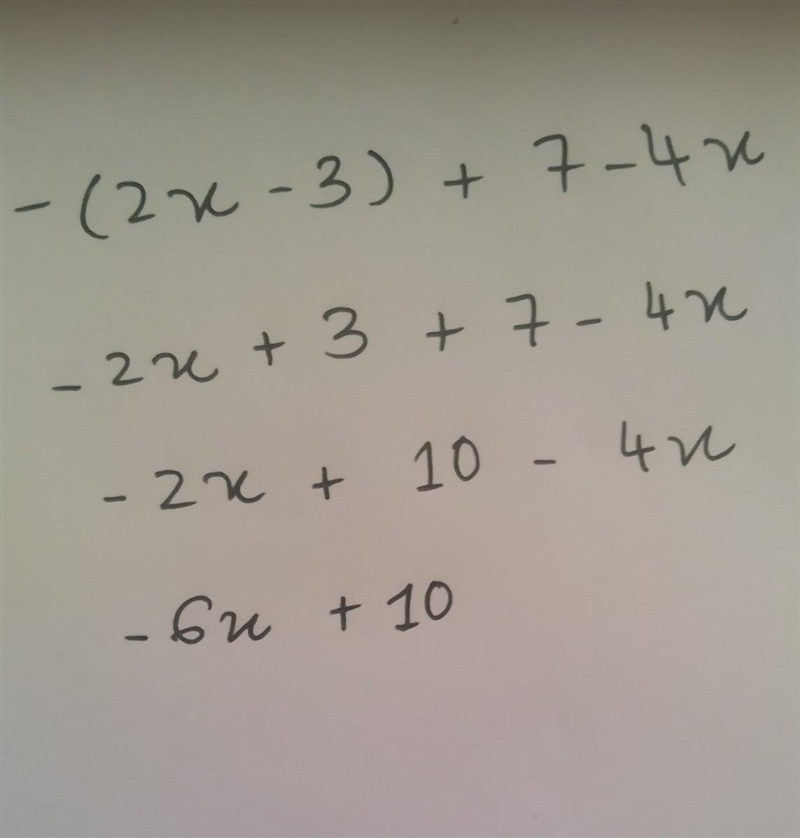 -(2x-3) + 7-4x
-2x + 3 + 7 - 4x
-2x + 10 - 4x
-6x + 10